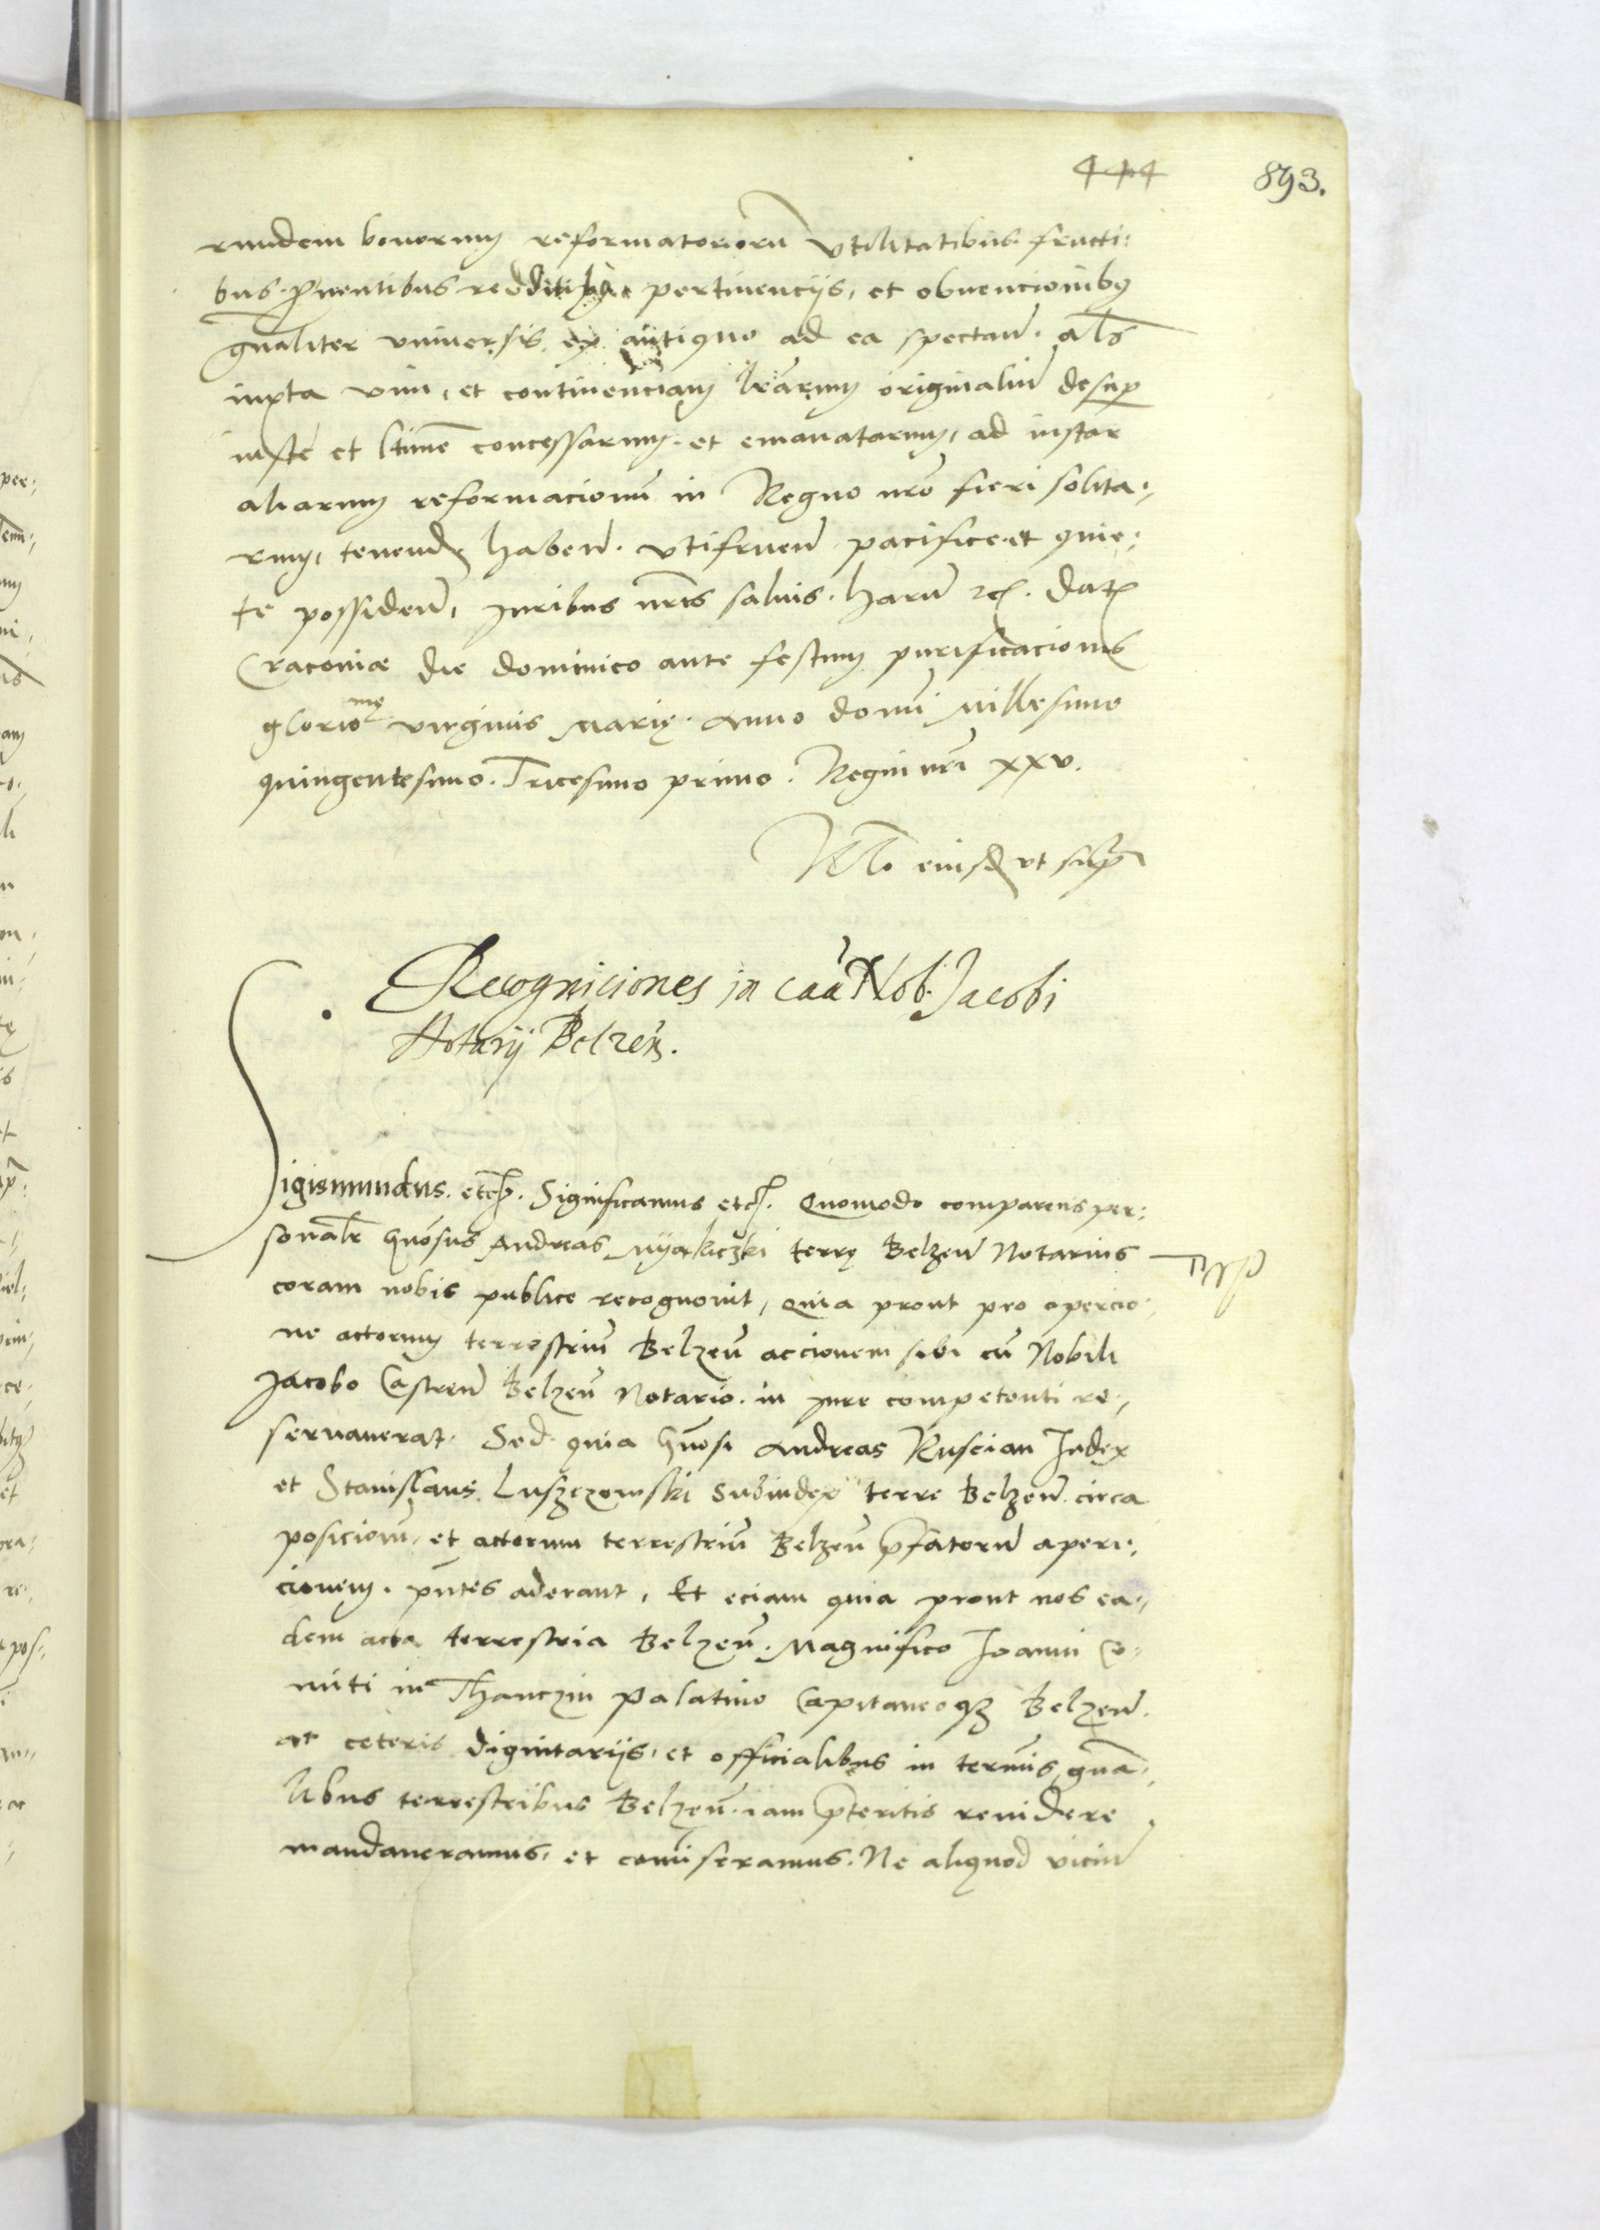 444 893.
rundem bonorum reformatoriorũ vtilitatibus fructi:
bus ꝓuentibus redditibꝫ pertinencijs, et obuencionibꝫ
gnãliter vniuersis ex antiquo ad ea spectañ. als̃
iuxta vim, et continenciam lrãrum originaliũ desuꝑ
iuste et ltimẽ concessarum et emanatarum, ad instar
aliarum reformacionũ in Regno nrõ fieri solita:
rum, tenend habeñ. vtifrueñ pacifice et quie:
te possideñ, juribus nrĩs saluis. Harũ ꝛc. Dat
Cracoviæ die dominico ante festum purificacionis
glorio me virginis Marię. Anno domĩ Millesimo
quingentesimo. Tricesimo primo. Regni nrĩ xxv.
Rlo eiusd vt supͣ
Recogniciones in caã Nob. Jacobi
Notarij Belzeñ.
Sigismundus. etc. Significamus etc. Quomodo comparens per:
sonalr̃ Gñosus Andreas Myakiczki terrę Belzeñ Notarius
coram nobis publice recognouit, quia prout pro apercio:
ne actorum terrestriũ Belzeñ accionem sibi cũ Nobili
Jacobo Castreñ Belzeñ Notario. in jure competenti re:
seruauerat. Sed quia Gñosi Andreas Ruscian Judex
et Stanislaus Luszczowski Subiudex terre Belzeñ. circa
posicionẽ, et actorum terrestriũ Belzeñ p̃fatorũ aperi:
cionem. pñtes aderant, Et eciam quia prout nos ea:
dem acta terrestria Belzeñ. Magnifico Joanni Co:
miti in Thanczin Palatino Capitaneoqꝫ Belzeñ.
ac ceteris dignitarijs, et officialibus in termĩs gñã:
libus terrestribus Belzeñ. iam p̃teritis reuidere
mandaueramus, et comĩseramus. Ne aliquod viciũ